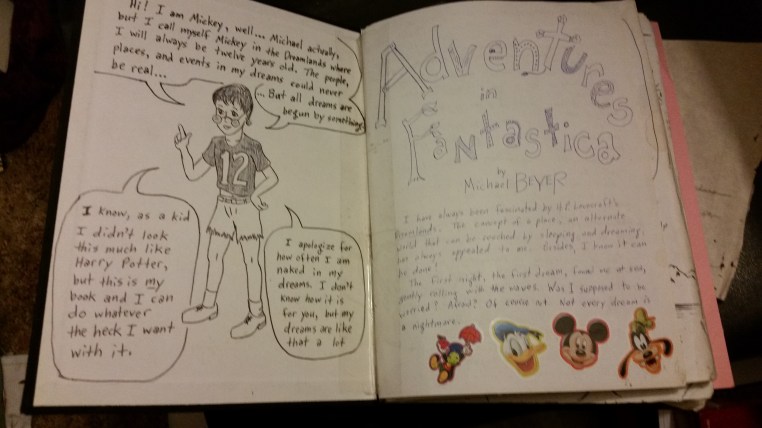 Hi! I am Mickey, well... Michael actually,
but I call myself Mickey in the Dreamlands where
I will always be twelve years old. The people,
places, and events in my dreams could never
be real...
...But all dreams are
begun by something
12
I know, as a kid
I didn't look
this much like
Harry Potter,
but this is my
book and I can
do whatever
the heck I want
with it.
I apologize for
how often I am
naked in my
dreams. I don't
know how it is
for you, but my
dreams are like
that a lot
Adventures
in
Fantastica
by
Michael BEYER
I have always been fascinated by H.P. Lovecraft's
Dreamlands. The concept of a place, an alternate
world that can be reached by sleeping and dreaming,
has always appealed to me. Besides, I know it can
be done!
The first night, the first dream, found me at sea,
gently rolling with the waves. Was I supposed to be
worried? Afraid? Of course not. Not every dream is
a nightmare.